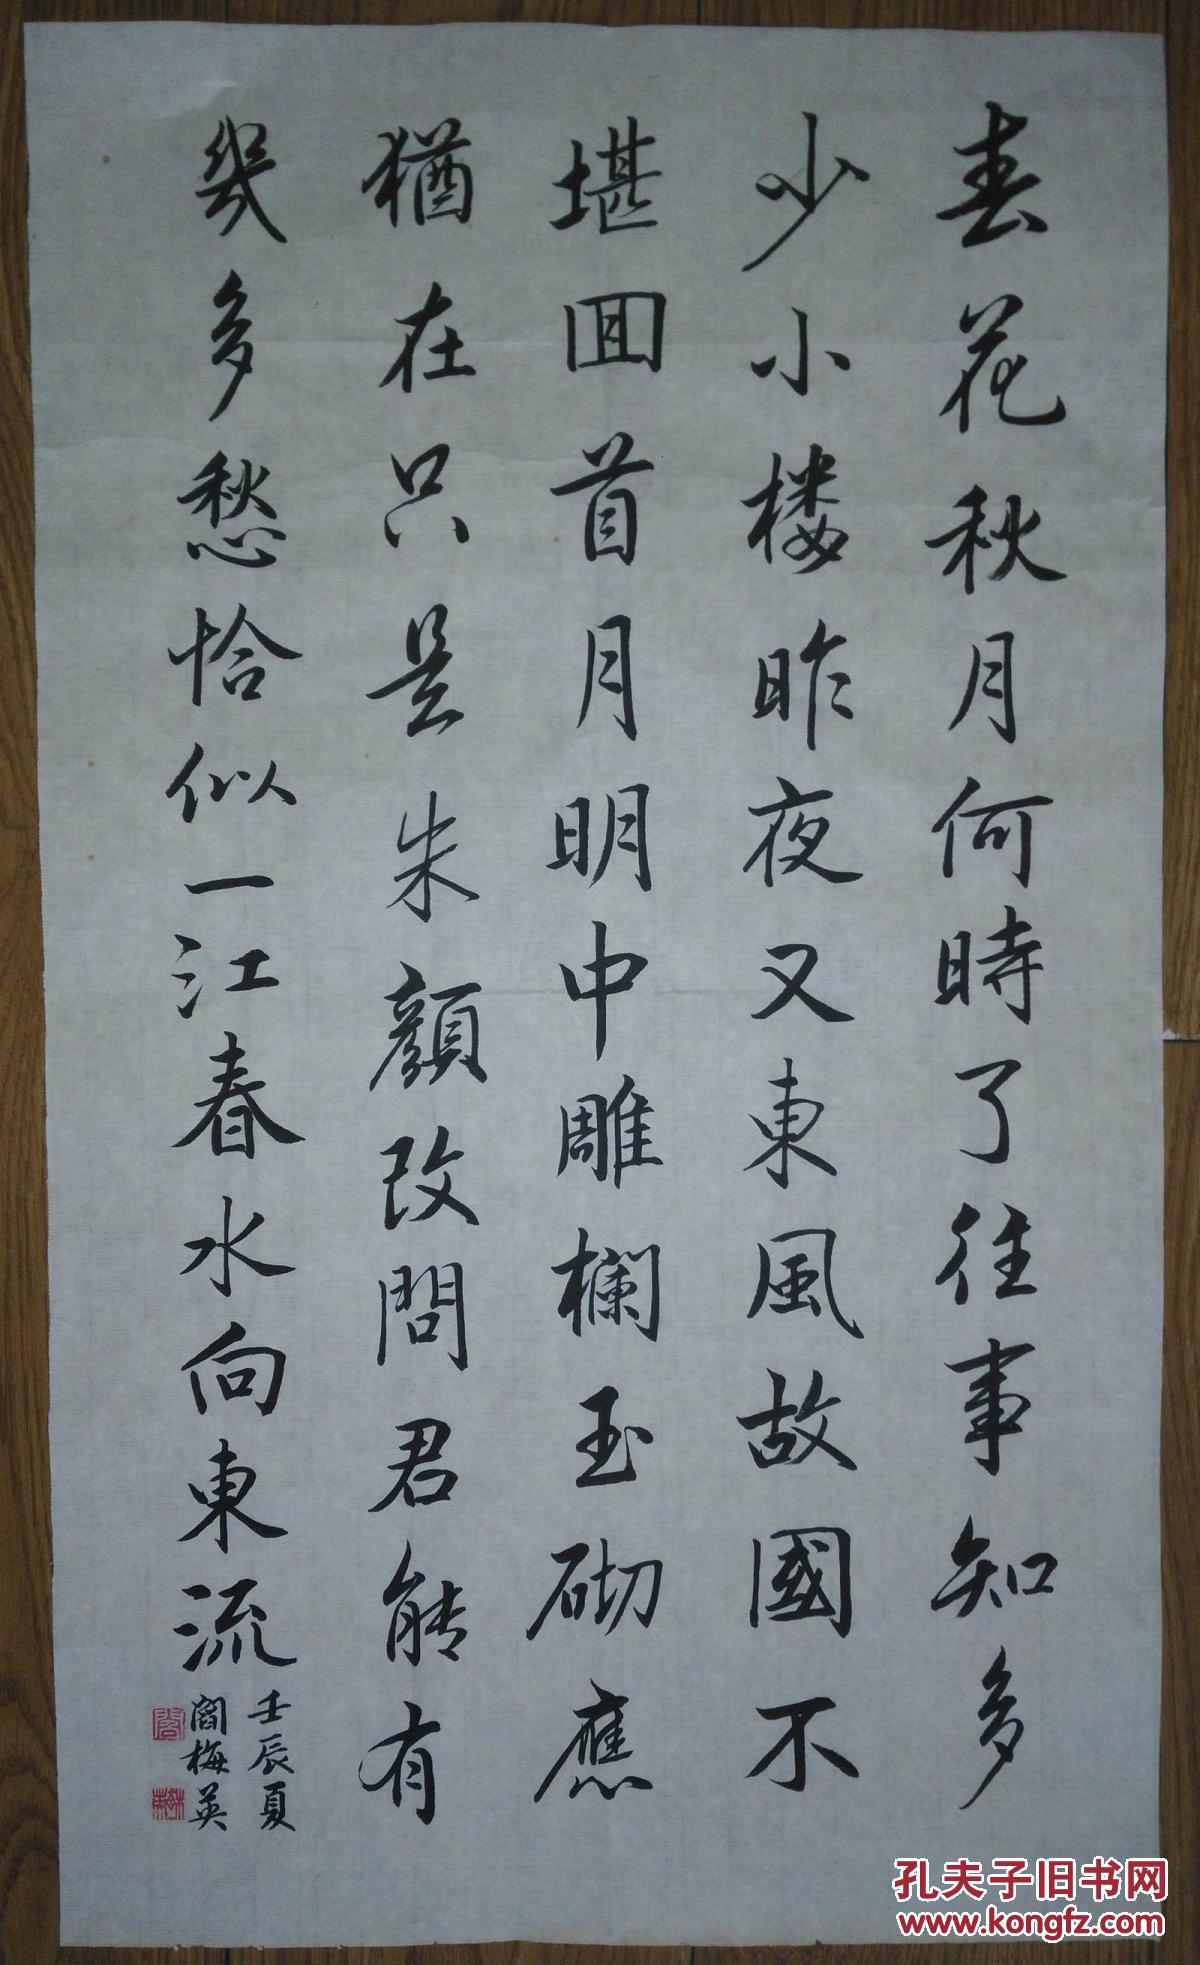 春花秋月何時了往事知多
少小楼昨夜又東風故國不
堪回首月明中雕欄玉砌應
猶在只是朱顔改問君能有
幾多愁恰似一江春水向東流
壬辰夏
閻梅英
孔夫子旧书网
www.kongfz.com